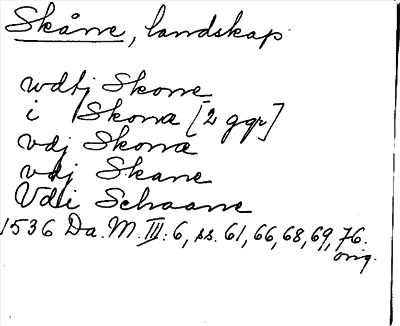 Skåne, landskap
wdtj Skone
i Skonæ [2 ggr]
vdj Skonæ
vdj Skane
Vdi Schaane
1536 Da. M. III: 6, ss. 61, 66, 68, 69, 76.
orig.